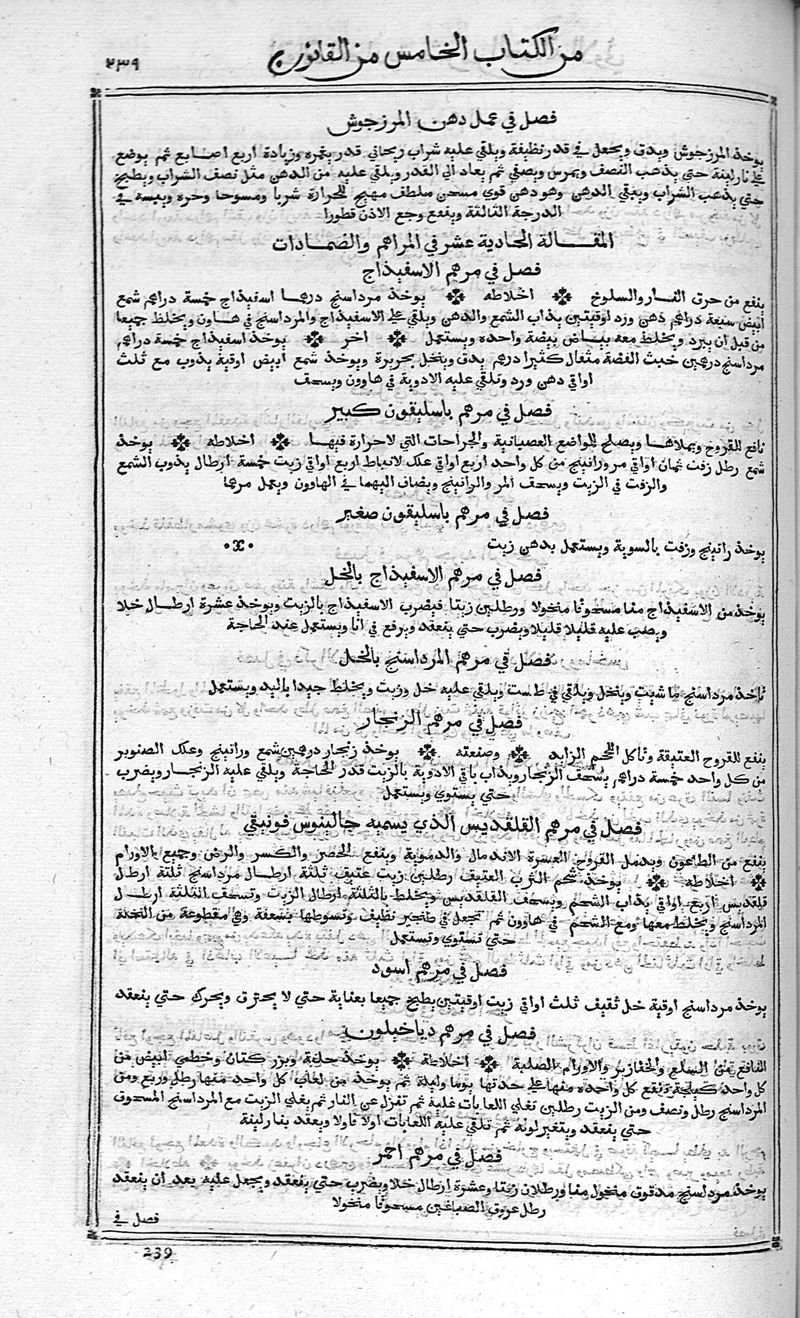 من الكتاب الخامس من القانون
٢٣٩
فصل في عمل دهن المرزجوش
يوخذ المرزجوش ويدق ويجعل في قدر نظيفة ويلقي عليه شراب ريحاني قدر يغمره وزيادة اربع اصابع ثم يوضع
علي نار لينة حتي يذهب النصف ويمرس ويصفي ثم يعاد الي القدر ويلقي عليه من الدهن مثل نصف الشراب ويطبخ
حتي يذهب الشراب ويبقي الدهن وهو دهن قوي مسخن ملطف مهيج للحرارة شربا ومسوحا وحره ويبسه في
الدرجة الثالثة وينفع وجع الاذن قطورا
المقالة الحادية عشر في المراهم والضمادات
فصل في مرهم الاسفيذاج
ينفع من حرق النار والسلوخ اخلاطه يوخذ مرداسنج درهما اسفيذاج خمسة دراهم شمع
ابيض سبعة دراهم دهن ورد اوقيتين يذاب الشمع والدهن ويلقي علي الاسفيذاج والمرداسنج في هاون ويخلط جميعا
من قبل ان يبرد ويخلط معه بياض بيضة واحده ويستعمل اخر يوخذ اسفيذاج خمسة دراهم
مرداسنج درهمين خبث الفضة مثقال كثيرا درهم يدق وينخل بحريرة ويوخذ شمع ابيض اوقية يذوب مع ثلث
اواقي دهن ورد وتلقي عليه الادوية في هاوون ويسحف
فصل في مرهم باسليقون كبير
نافع للقروح ويملاها ويصلح للمواضع العصبانية والجراحات التي لا حرارة فيها اخلاطه يوخذ
شمع رطل زفت ثمان اواقي مر وراتينج من كل واحد اربع اواقي علك لانباط اربع اواقي زيت خمسة ارطال يذوب الشمع
والزفت في الزيت ويسحف المر والراتينج ويضاف اليهما في الهاوون ويعمل مرهما
فصل في مرهم باسليقون صغير
يوخذ راتينج وزفت بالسوية ويستعمل بدهن زيت
فصل في مرهم الاسفيذاج بالخل
يوخذ من الاسفيذاج منا مسحوقا منخولا ورطلين زيتا فيضرب الاسفيذاج بالزيت ويوخذ عشرة ارطال خلا
ويصب عليه قليلا قليلا ويضرب حتي ينعقد ويرفع في انا ويستعمل عند الحاجة
فصل في مرهم المرداسنج بالخل
تاخذ مرداسنج ما شيت وينخل ويلقي في طست ويلقي عليه خل وزيت ويخلط جيدا باليد ويستعمل
فصل في مرهم الزنجار
ينفع للقروح العتيقة وتاكل اللحم الزايد وصنعته يوخذ زنجار درهمين شمع وراتينج وعلك الصنوبر
من كل واحد خمسة دراهم يسحف الزنجار ويذاب باقي الادوية بالزيت قدر الحاجة ويلقي عليه الزنجار ويضرب
حتي يستوي ويستعمل
فصل في مرهم القلقديس الذي يسميه جالينوس فونيقي
ينفع من الطاعون ويدمل القروح العسرة الاندمال والدموية وينفع الحصر والكسر والرض وجميع الاورام
اخلاطه يوخذ شحم الثرب العتيف رطلين زيت عتيف ثلثة ارطال مرداسنج ثلثة ارطال
قلقديس اربع اواقي يذاب الشحم ويسحف القلقديس ويخلط بالثلثة ارطال الزيت وتسحف الثلثة ارطال
المرداسنج ويخلط معها ومع الشحم في هاوون ثم تجعل في طنجير نظيف وتسوطها بسعفة وهي مقطوعة من النخلة
حتي تستوي وتستعمل
فصل في مرهم اسود
يوخذ مرداسنج اوقية خل ثقيف ثلث اواقي زيت اوقيتين يطبخ جميعا بعناية حتي لا يحترق ويحرك حتي ينعقد
فصل في مرهم دياخيلون
النافع من السلع والخنازير والاورام الصلبة اخلاطه يوخذ حلبة وبزر كتان وخطمي ابيض من
كل واحد كيلجة تنقع كل واحده منها علي حدتها يوما وليلة ثم يوخذ من لعاب كل واحد منها رطل وربع ومن
المرداسنج رطل ونصف ومن الزيت رطلين تغلي اللعابات غلية ثم تنزل عن النار ثم يغلي الزيت مع المرداسنج المسحوف
حتي ينعقد ويتغير لونه ثم تلقي عليه اللعابات اولا فاولا ويعقد بنار لينة
فصل في مرهم احمر
يوخذ مرداسنج مدقوق منخول منا ورطلان زيتا وعشرة ارطال خلا ويضرب حتي ينعقد ويجعل عليه بعد ان ينعقد
رطل عروق الصباغين مسحوقا منخولا
فصل في
239